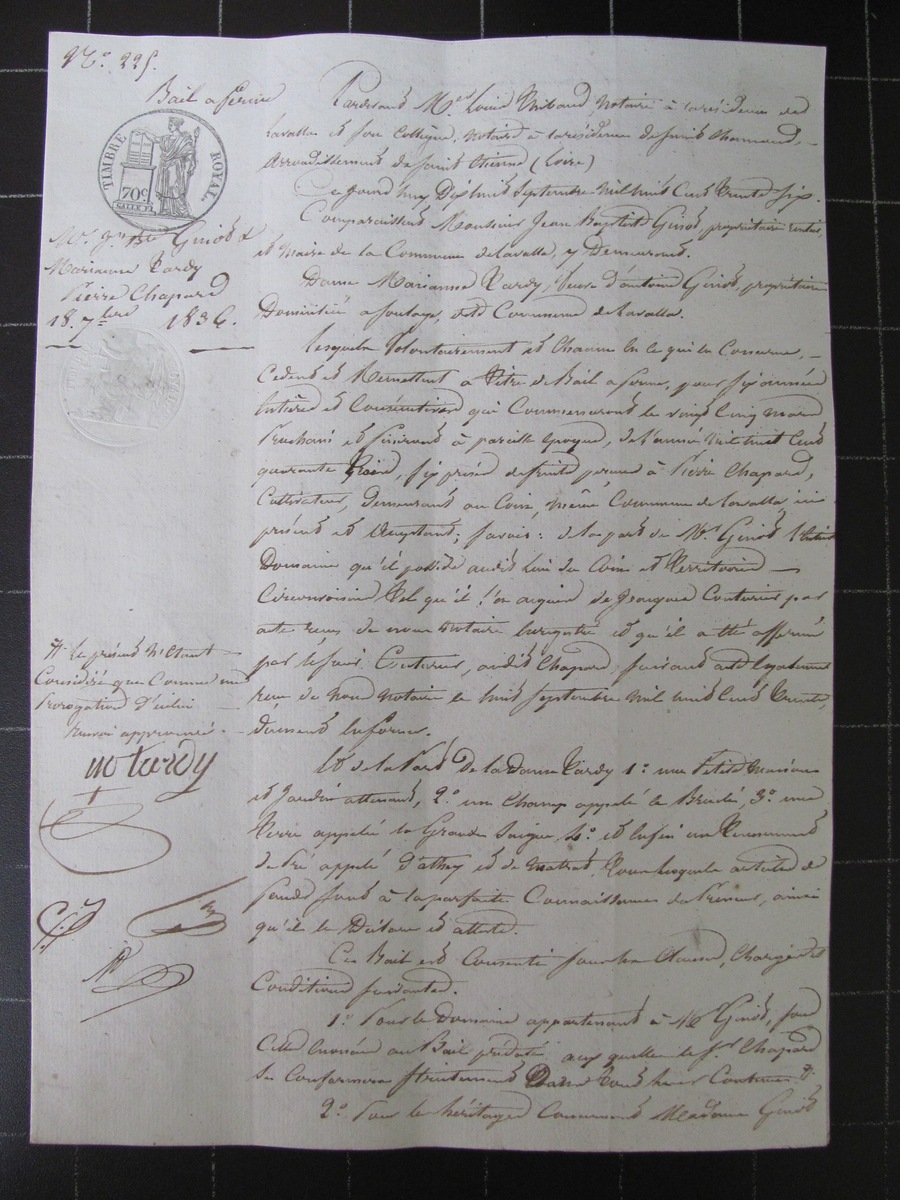 N.o 225.
Bail a ferme
TIMBRE ROYAL
70c
Mr. Jn Bte Guiot &
Marianne Tardy
Pierre Chapard
18. 7bre 1836.
Pardevant Me. Louis Thibaud Notaire à la résidence de
Lavalla et son Collègue, Notaire à la résidence de saint Chamond,
arrondissement de saint Etienne (Loire)
Ce jourd'huy Dix huit septembre mil huit Cent Trente Six.
Comparaissent Monsieur Jean Baptiste Guiot, propriétaire rentier,
et Maire de la Commune de Lavalla, y Demeurant.
Dame Marianne Tardy, Veuve d'antoine Guiot, propriétaire
Domiciliée a soulage, dte Commune de Lavalla.
Lesquels Volontairement et Chacun En Ce qui les Concerne,
Cedent et Remettent à Titre de Bail a ferme, pour six années
Entières et Consécutives qui Commenceront le vingt Cinq mars
Prochain et finiront à pareille époque, de l'année mil huit Cent
quarante Trois, six prises de fruits, permis à Pierre Chapard,
Cultivateur, Demeurant au Coin, même Commune de Lavalla, ici
présent et Acceptant; savoir: de la part de Mr. Guiot l'entier
Domaine qu'il possède audit Lieu du Coin et Territoires
Circonvoisins Tel qu'il l'a acquis de Jacques Couturier par
acte reçu de nous Notaire Enregistré et qu'il a été affermé
par le sieur Couturier, audit Chapard, suivant acte Egalement
reçu de Nous Notaire le huit septembre mil huit Cent Trente,
Dument En forme.
Et de la Part de la Dame Tardy 1.o une Petite Maison
et Jardin attenant, 2.o un Champ appelé le Brulé, 3.o une
Terre appelée la Grande Saigne 4.o et Enfin un Tenement
de Pré appelé D'athey et de Matrat, Tous lesquels articles de
fonds sont à la parfaite Connaissance du Preneur, ainsi
qu'il le Déclare et atteste.
Ce Bail est Consenti sous les Clauses, Charges et
Conditions suivantes.
1.o Pour le Domaine appartenant à Mr Guiot, sous
Celles Enoncées au Bail prédaté aux quelles le sr. Chapard
Se Conformera Strictement Dans Tout leur Contenu #.
2.o Pour les héritages Concernant Madame Guiot
#. Le présent N'étant
Considéré que Comme une
Prorogation D'icelui
Renvoi approuvé
m tardy